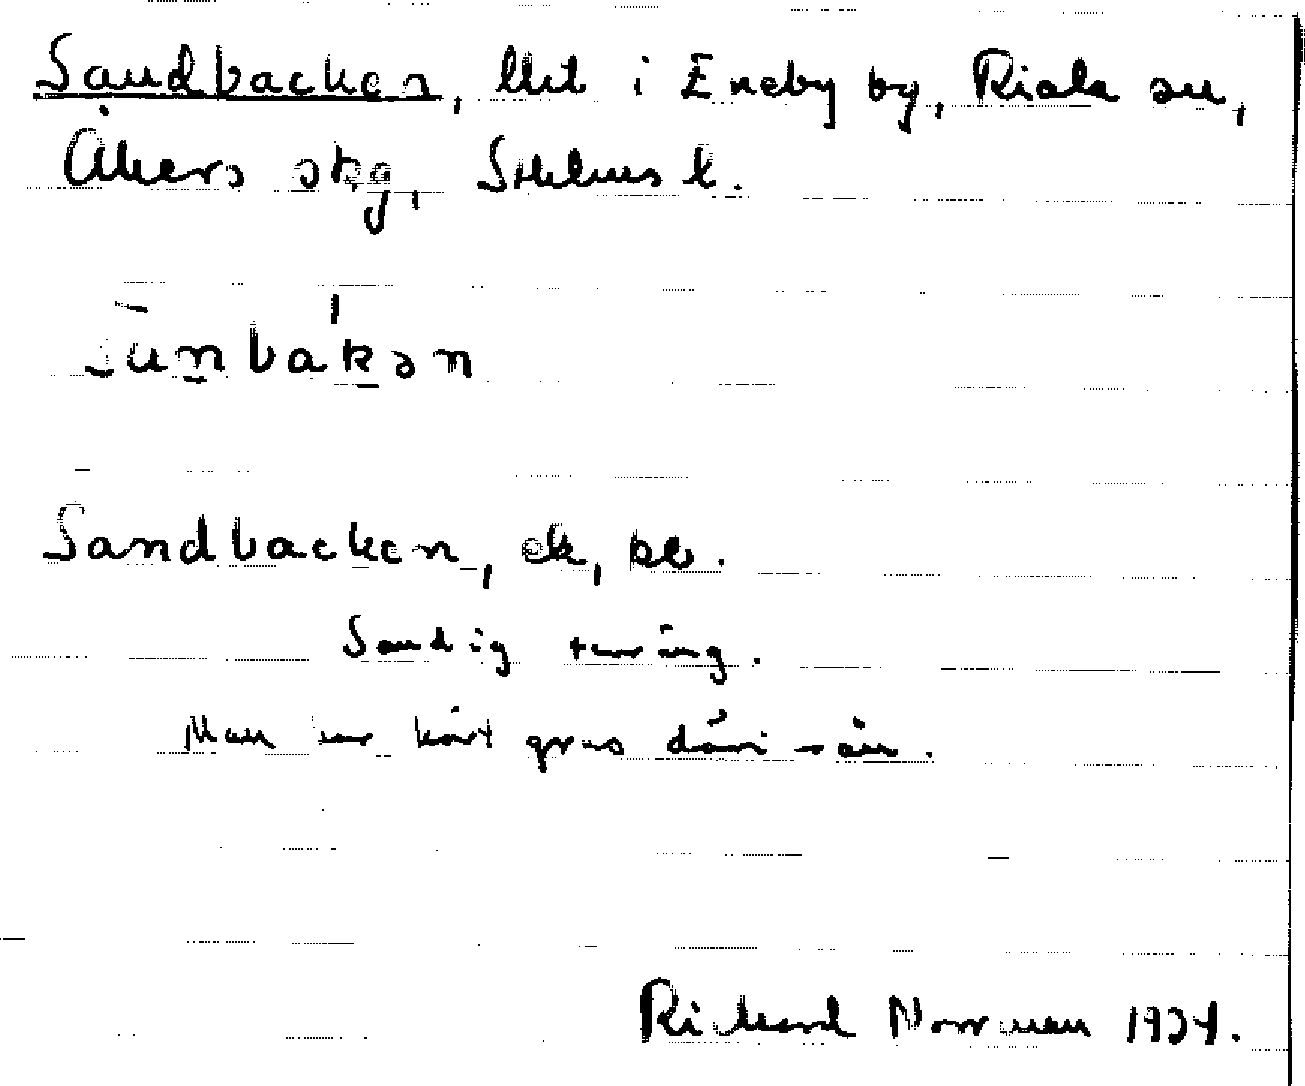 Sandbacken, llht i Eneby by, Riala sn,
Åkers skg, Sthlms l.
Sandbacken, ek, bb.
Sandig terräng.
Man har kört grus därifrån.
Rickard Norrman 1934.